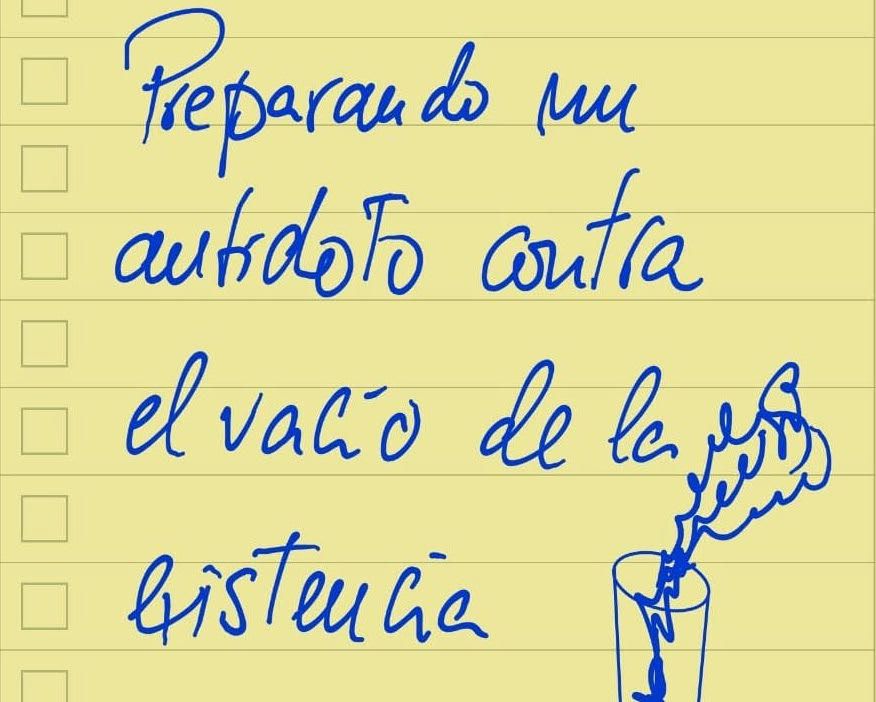 Preparando un
antidoto contra
el vacío de la
existencia